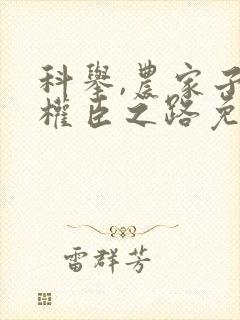 科舉,農家子
權臣之路免
雷群芳